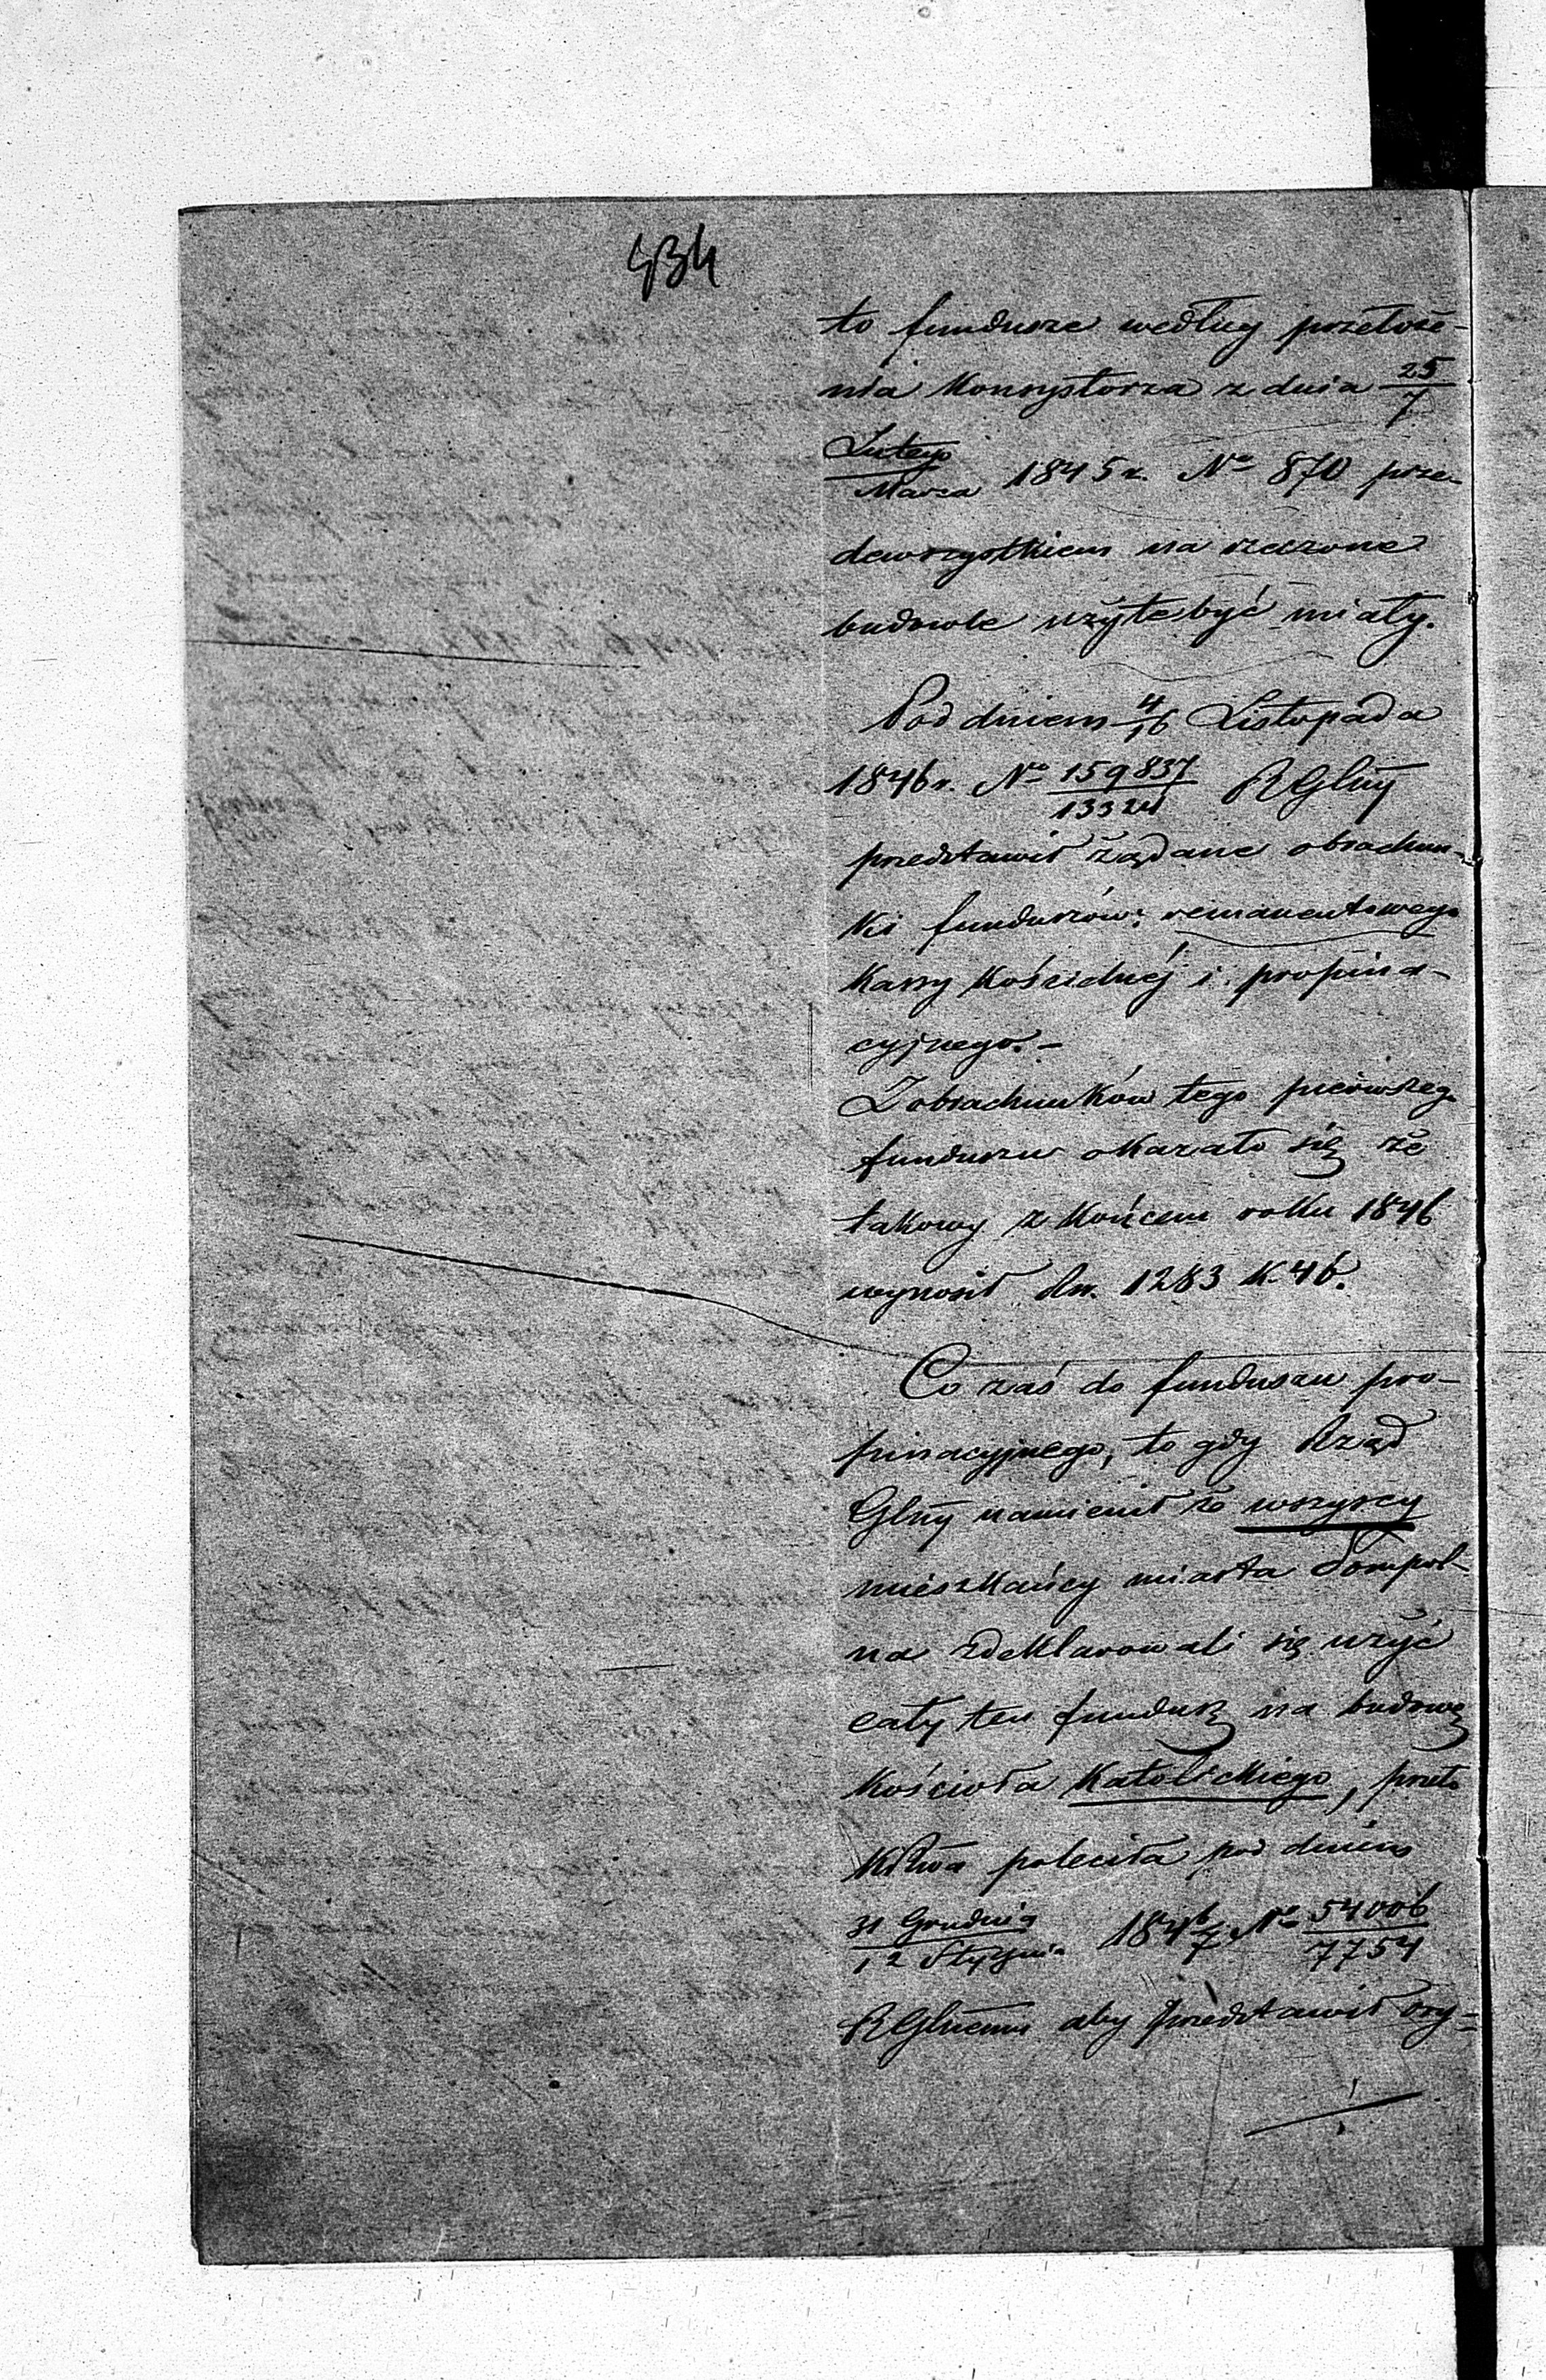 434
to fundusze według przełoże-
nia Konsystorza z dnia 25/7
Lutego/Marca 1845 r. No 870 prze-
dewszystkiem na rzeczone
budowle użyte być miały.
Pod dniem 4/16 Listopada
1846 r. No 159837/13324 RGlny
przedstawił żądane obrachun-
ki funduszów: remanentowego
Kassy Kościelnéj i propina-
cyjnego.-
Z obrachunków tego pierwszego
funduszu okazało się że
takowy z końcem roku 1846
wynosił Rsr. 1283 K. 46.
Co zaś do funduszu pro-
pinacyjnego, to gdy Rząd
Glny namienił że wszyscy
mieszkańcy miasta Sompol-
na zdeklarowali się użyć
cały ten fundusz na budowę
Kościoła Katolickiego, przeto
poleciła pod dniem
31 Grudnia/12 Stycznia 1846/7 No 54006/7754
RGlnemu aby przedstawił ory-